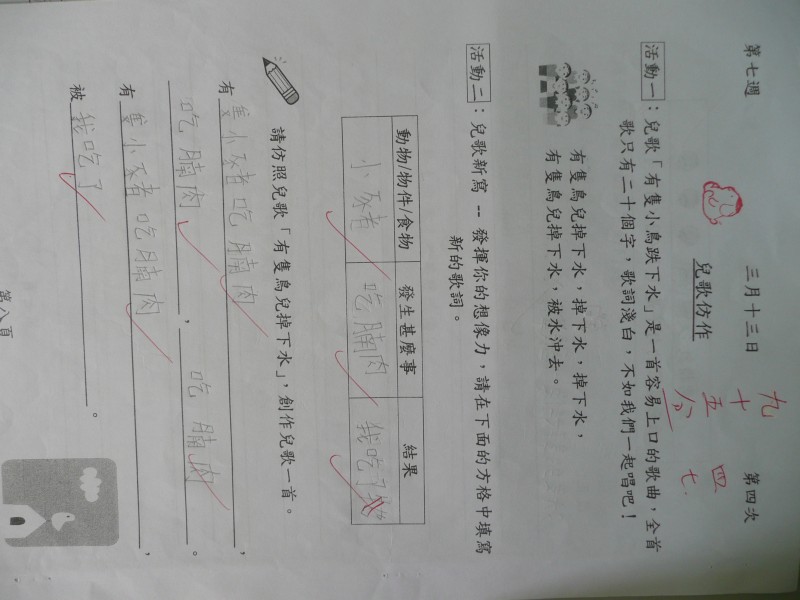 第七週 三月十三日 第四次
兒歌仿作
九十五分
四七
活動一：兒歌「有隻小鳥跌下水」是一首容易上口的歌曲，全首
歌只有二十個字，歌詞淺白，不如我們一起唱吧！
有隻鳥兒掉下水，掉下水，掉下水，
有隻鳥兒掉下水，被水沖去。
活動二：兒歌新寫 -- 發揮你的想像力，請在下面的方格中填寫
新的歌詞。
動物/物件/食物 發生甚麼事 結果
小豬 吃腩肉 我吃了
請仿照兒歌「有隻鳥兒掉下水」，創作兒歌一首。
有隻小豬吃腩肉，
吃腩肉，吃腩肉。
有隻小豬吃腩肉，
被我吃了。
第八頁